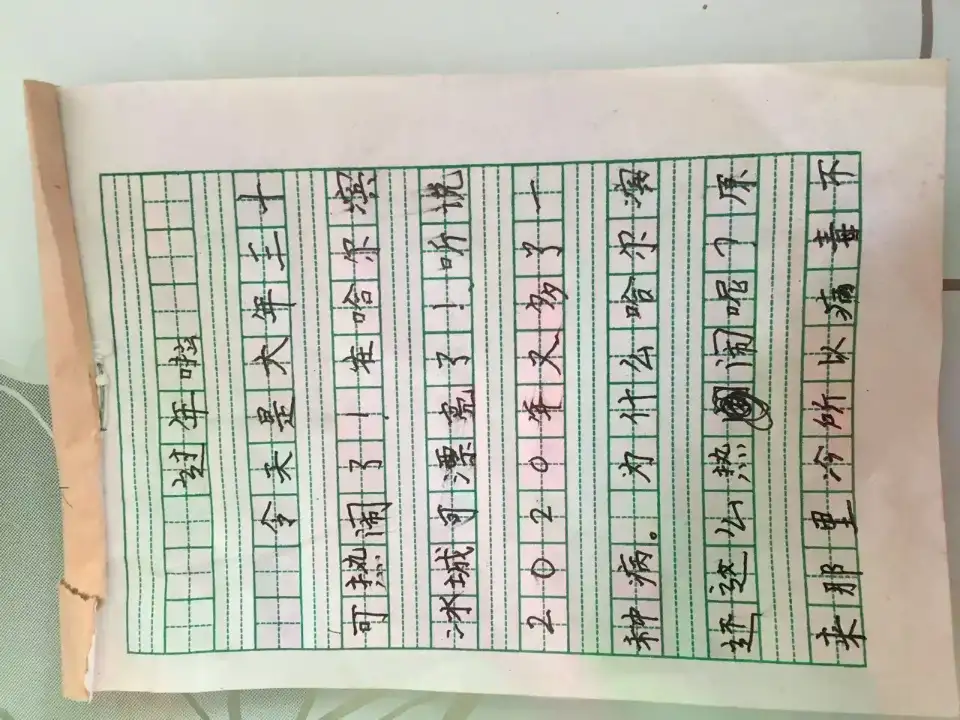 过年啦
今天是大年三十
可热闹了！在哈尔滨
冰城可漂亮了！听说
2020年又多了一
种病。为什么哈尔滨
还这么热闹呢？原
来那里冷所以病毒不